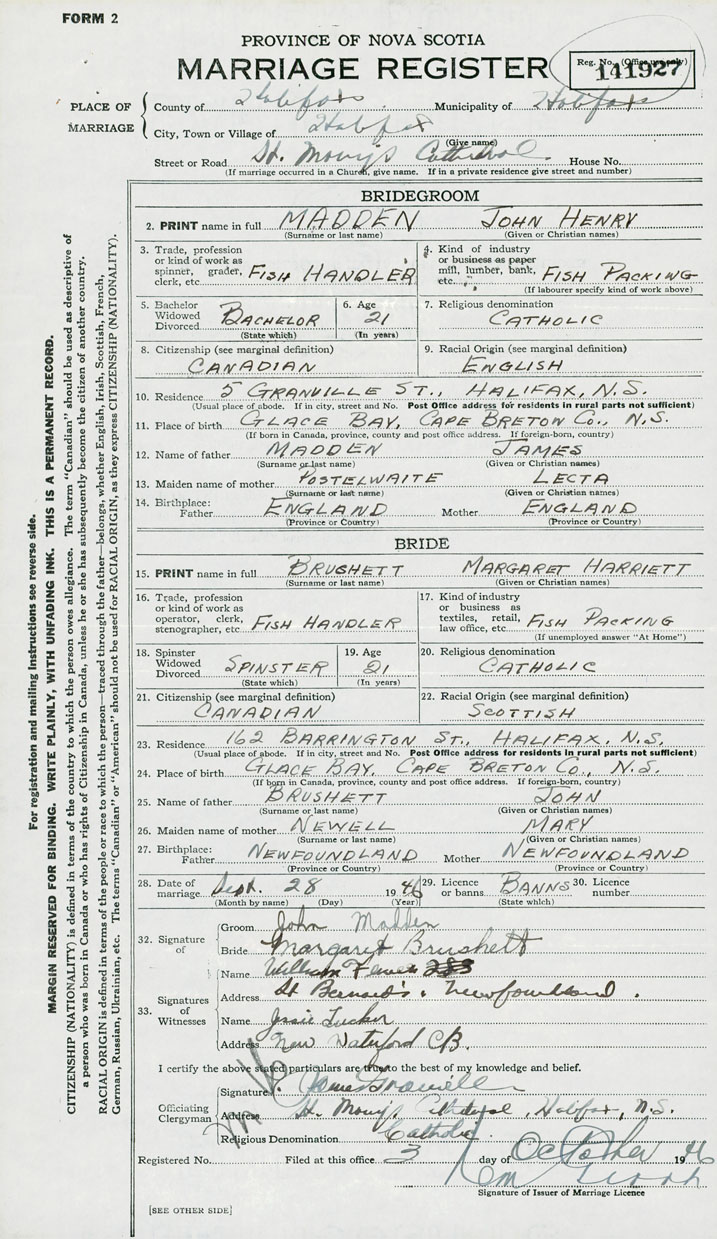 FORM 2
PROVINCE OF NOVA SCOTIA
MARRIAGE REGISTER
Reg. No. (Office use only)
141927
PLACE OF MARRIAGE
County of Halifax Municipality of Halifax
City, Town or Village of Halifax
(Give name)
Street or Road St. Mary's Cathedral House No.
(If marriage occurred in a Church, give name. If in a private residence give street and number)
BRIDEGROOM
2. PRINT name in full MADDEN JOHN HENRY
(Surname or last name) (Given or Christian names)
3. Trade, profession or kind of work as spinner, grader, clerk, etc. FISH HANDLER
4. Kind of industry or business as paper mill, lumber, bank, etc. FISH PACKING
(If labourer specify kind of work above)
5. Bachelor Widowed Divorced BACHELOR (State which)
6. Age 21 (In years)
7. Religious denomination CATHOLIC
8. Citizenship (see marginal definition) CANADIAN
9. Racial Origin (see marginal definition) ENGLISH
10. Residence 5 GRANVILLE ST., HALIFAX, N.S.
(Usual place of abode. If in city, street and No. Post Office address for residents in rural parts not sufficient)
11. Place of birth GLACE BAY, CAPE BRETON CO., N.S.
(If born in Canada, province, county and post office address. If foreign-born, country)
12. Name of father MADDEN JAMES
(Surname or last name) (Given or Christian names)
13. Maiden name of mother POSTELWAITE LECTA
(Surname or last name) (Given or Christian names)
14. Birthplace: Father ENGLAND Mother ENGLAND
(Province or Country) (Province or Country)
BRIDE
15. PRINT name in full BRUSHETT MARGARET HARRIETT
(Surname or last name) (Given or Christian names)
16. Trade, profession or kind of work as operator, clerk, stenographer, etc FISH HANDLER
17. Kind of industry or business as textiles, retail, law office, etc. FISH PACKING
(If unemployed answer "At Home")
18. Spinster Widowed Divorced SPINSTER (State which)
19. Age 21 (In years)
20. Religious denomination CATHOLIC
21. Citizenship (see marginal definition) CANADIAN
22. Racial Origin (see marginal definition) SCOTTISH
23. Residence 162 BARRINGTON ST., HALIFAX, N.S.
(Usual place of abode. If in city, street and No. Post Office address for residents in rural parts not sufficient)
24. Place of birth GLACE BAY, CAPE BRETON CO., N.S.
(If born in Canada, province, county and post office address. If foreign-born, country)
25. Name of father BRUSHETT JOHN
(Surname or last name) (Given or Christian names)
26. Maiden name of mother NEWELL MARY
(Surname or last name) (Given or Christian names)
27. Birthplace: Father NEWFOUNDLAND Mother NEWFOUNDLAND
(Province or Country) (Province or Country)
28. Date of marriage Sept. 28 1946
(Month by name) (Day) (Year)
29. Licence or banns BANNS (State which)
30. Licence number
32. Signature of
Groom John Madden
Bride Margaret Brushett
33. Signatures of Witnesses
Name William
Address St Bernard's, Newfoundland.
Name Jessie Tucker
Address New Waterford CB.
I certify the above stated particulars are true to the best of my knowledge and belief.
Officiating Clergyman
Signature James
Address St. Mary's Cathedral, Halifax, N.S.
Religious Denomination Catholic
Registered No. Filed at this office 3 day of October 1946
Signature of Issuer of Marriage Licence
[SEE OTHER SIDE]
For registration and mailing instructions see reverse side.
MARGIN RESERVED FOR BINDING. WRITE PLAINLY, WITH UNFADING INK. THIS IS A PERMANENT RECORD.
CITIZENSHIP (NATIONALITY) is defined in terms of the country to which the person owes allegiance. The term "Canadian" should be used as descriptive of
a person who was born in Canada or who has rights of Citizenship in Canada, unless he or she has subsequently become the citizen of another country.
RACIAL ORIGIN is defined in terms of the people or race to which the person—traced through the father—belongs, whether English, Irish, Scottish, French,
German, Russian, Ukrainian, etc. The terms "Canadian" or "American" should not be used for RACIAL ORIGIN, as they express CITIZENSHIP (NATIONALITY).